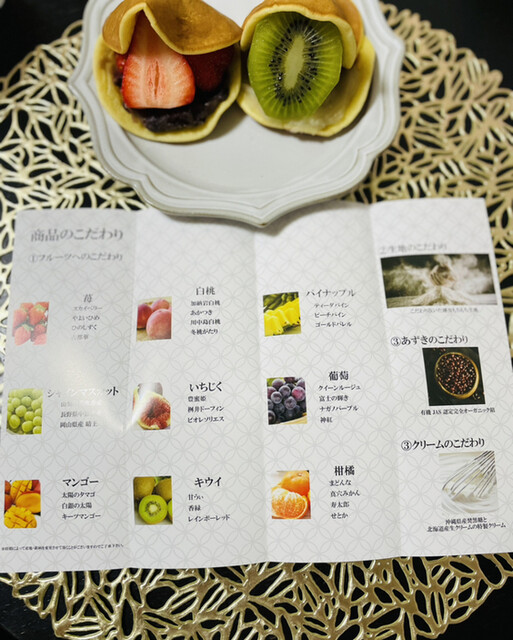 商品のこだわり
①フルーツへのこだわり
苺
やよいひめ
ひのしずく
白桃
加納岩白桃
あかつき
川中島白桃
冬桃がたり
パイナップル
ティーダパイン
ピーチパイン
ゴールドバレル
②生地のこだわり
岡山県産 晴王
いちじく
豊蜜姫
桝井ドーフィン
ビオレソリエス
葡萄
クイーンルージュ
富士の輝き
ナガノパープル
神紅
③あずきのこだわり
有機 JAS 認定完全オーガニック
マンゴー
太陽のタマゴ
白銀の太陽
キーツマンゴー
キウイ
甘うぃ
香緑
レインボーレッド
柑橘
まどんな
真穴みかん
寿太郎
せとか
③クリームのこだわり
沖縄県産焚黒糖と
北海道産生クリームの特製クリーム